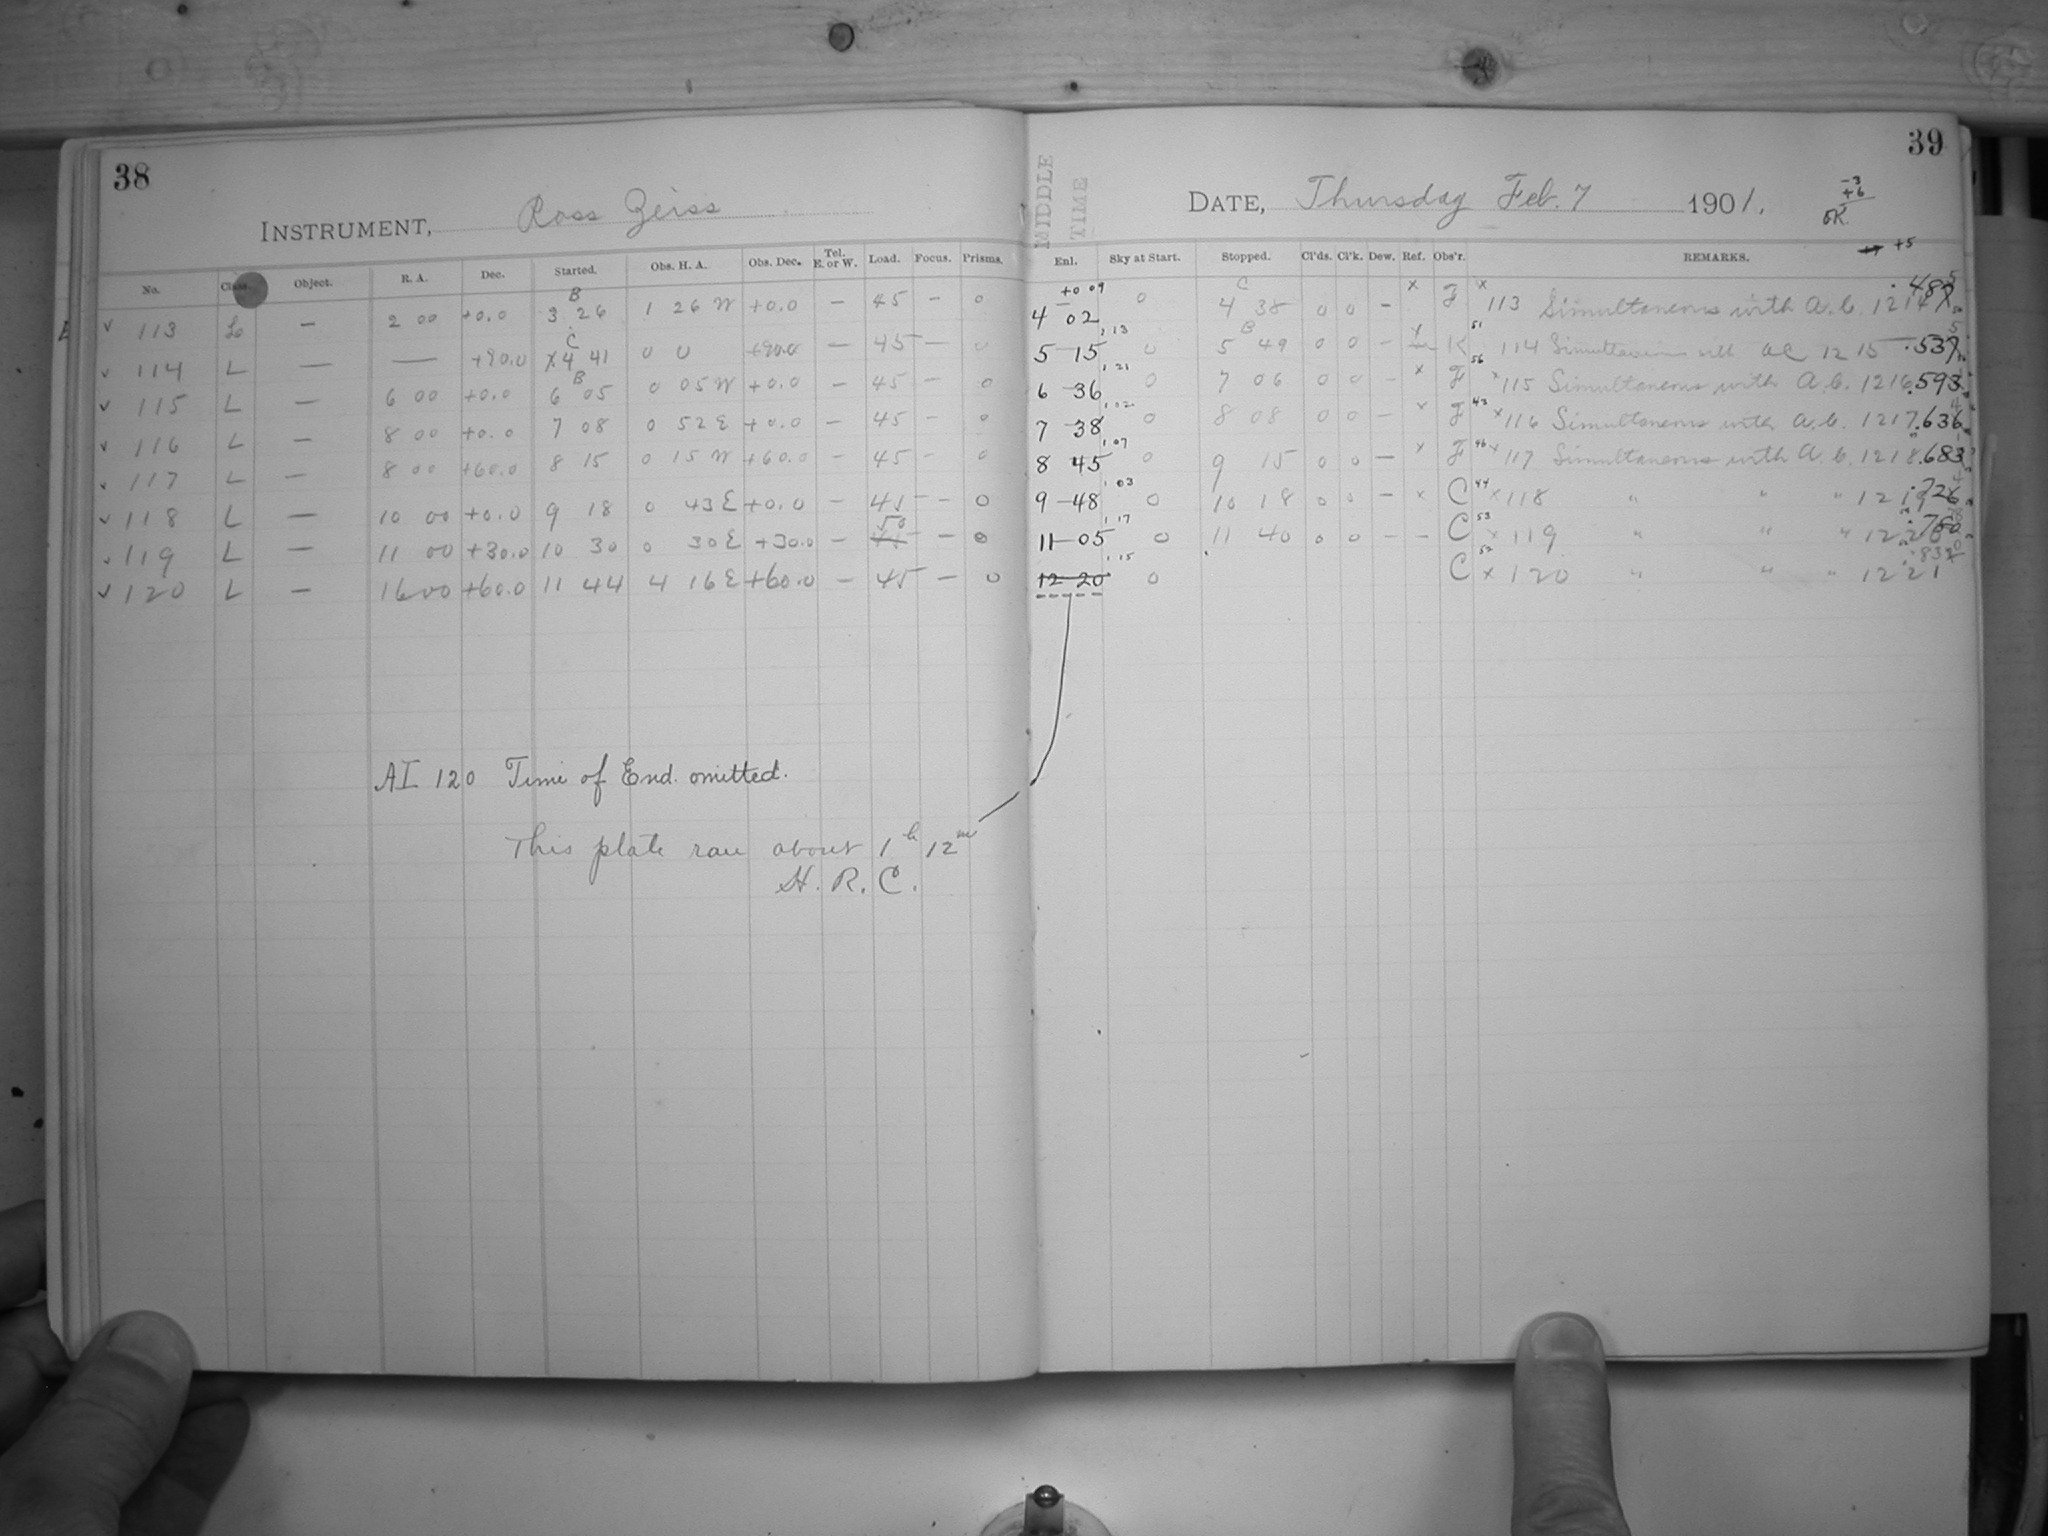 38
INSTRUMENT, Ross Zeiss
No. Class. Object. R. A. Dec. Started. Obs. H. A. Obs. Dec. Tel. E. or W. Load. Focus. Prisms.
v 113 L — 2 00 +0.0 3 26 B 1 26 W +0.0 — 45 — 0
v 114 L — — +90.0 4 41 C 0 0 +90.0 — 45 — 0
v 115 L — 6 00 +0.0 6 05 B 0 05 W +0.0 — 45 — 0
v 116 L — 8 00 +0.0 7 08 0 52 E +0.0 — 45 — 0
v 117 L — 8 00 +60.0 8 15 0 15 W +60.0 — 45 — 0
v 118 L — 10 00 +0.0 9 18 0 43 E +0.0 — 45 — 0
v 119 L — 11 00 +30.0 10 30 0 30 E +30.0 — 50 — 0
v 120 L — 16 00 +60.0 11 44 4 16 E +60.0 — 45 — 0
AI 120 Time of End omitted.
This plate ran about 1h 12m
H. R. C.
39
MIDDLE TIME
DATE, Thursday Feb. 7 1901.
-3
+6
OK.
+5
Enl. Sky at Start. Stopped. Cl'ds. Cl'k. Dew. Ref. Obs'r. REMARKS.
4 02 +0 09 0 4 38 C 0 0 — x F x 113 Simultaneous with A.C. 1214
5 15 13 0 5 49 B 0 0 — K 51 114 Simultaneous with AC 1215 .537
6 36 21 0 7 06 0 0 — x F 56 x 115 Simultaneous with A.C. 1216 .593
7 38 02 0 8 08 0 0 — x F 43 x 116 Simultaneous with A.C. 1217 .636
8 45 07 0 9 15 0 0 — x F 46 x 117 Simultaneous with A.C. 1218 .683
9 48 03 0 10 18 0 0 — x C 44 x 118 " " " 1219
11 05 17 0 11 40 0 0 — — C 53 x 119 " " " 1220 .780
12 20 15 0 C 52 x 120 " " " 1221